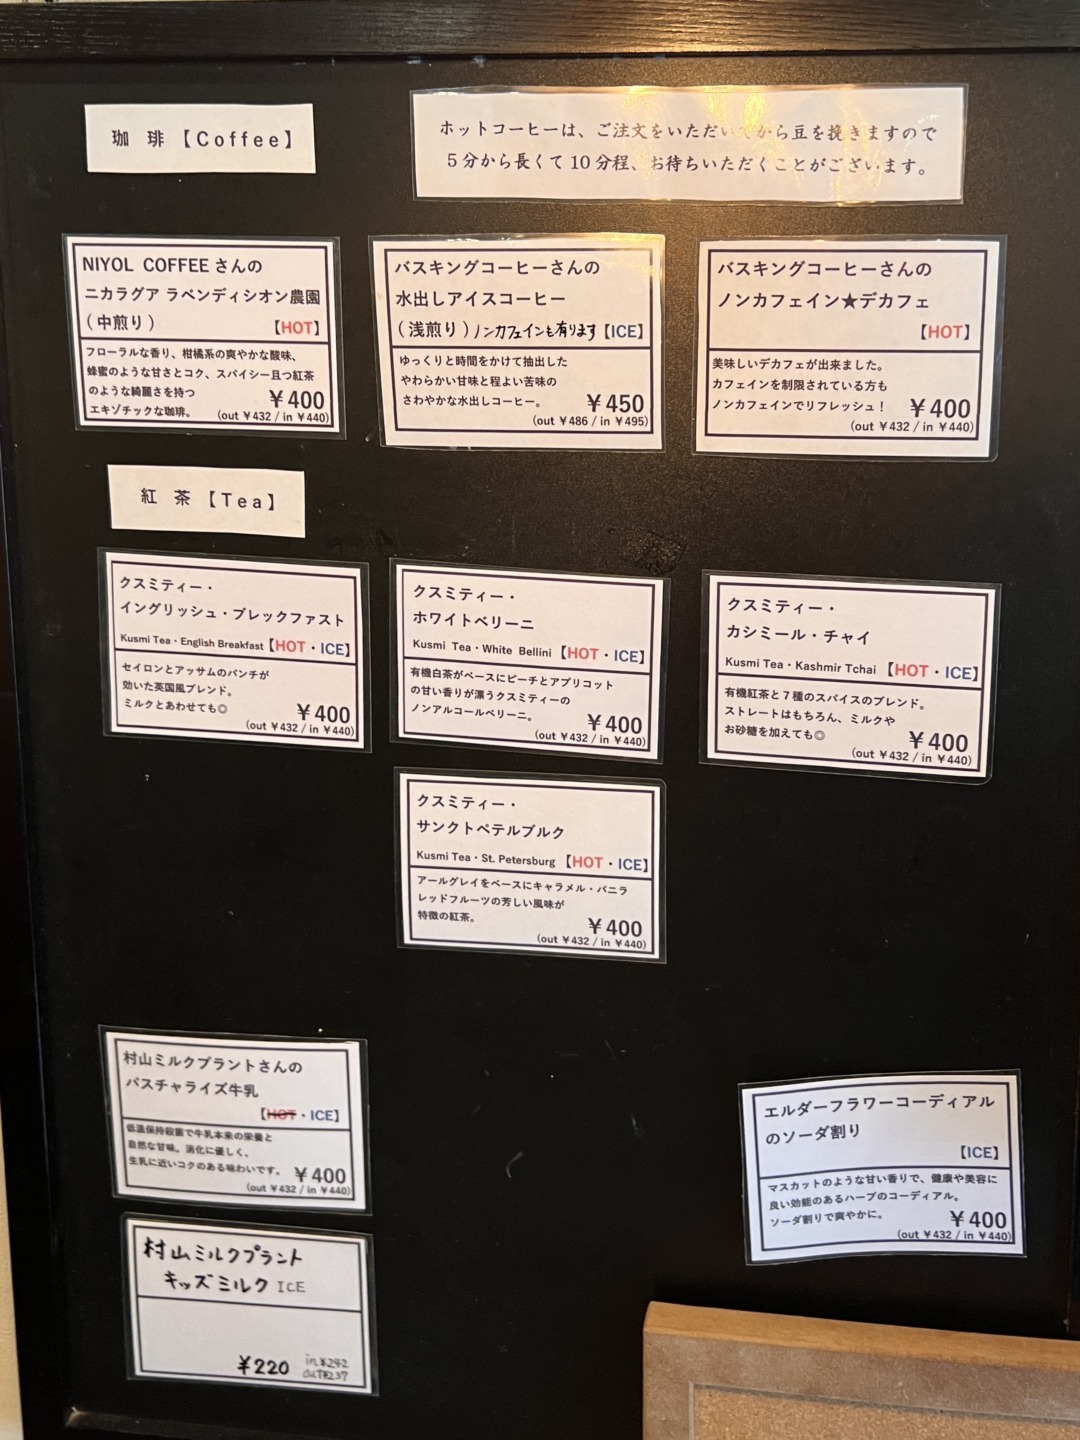 珈 琲【Coffee】
ホットコーヒーは、ご注文をいただいてから豆を挽きますので
５分から長くて10分程、お待ちいただくことがございます。
NIYOL COFFEEさんの
ニカラグア ラベンディシオン農園
（中煎り） 【HOT】
フローラルな香り、柑橘系の爽やかな酸味、
蜂蜜のような甘さとコク、スパイシー且つ紅茶
のような綺麗さを持つ
エキゾチックな珈琲。
￥400
(out ￥432 / in ￥440)
バスキングコーヒーさんの
水出しアイスコーヒー
（浅煎り）ノンカフェインも有ります【ICE】
ゆっくりと時間をかけて抽出した
やわらかい甘味と程よい苦味の
さわやかな水出しコーヒー。
￥450
(out ￥486 / in ￥495)
バスキングコーヒーさんの
ノンカフェイン★デカフェ
【HOT】
美味しいデカフェが出来ました。
カフェインを制限されている方も
ノンカフェインでリフレッシュ！
￥400
(out ￥432 / in ￥440)
紅 茶【Tea】
クスミティー・
イングリッシュ・ブレックファスト
Kusmi Tea・English Breakfast【HOT・ICE】
セイロンとアッサムのパンチが
効いた英国風ブレンド。
ミルクとあわせても◎
￥400
(out ￥432 / in ￥440)
クスミティー・
ホワイトベリーニ
Kusmi Tea・White Bellini【HOT・ICE】
有機白茶がベースにピーチとアプリコット
の甘い香りが漂うクスミティーの
ノンアルコールベリーニ。
￥400
(out ￥432 / in ￥440)
クスミティー・
カシミール・チャイ
Kusmi Tea・Kashmir Tchai 【HOT・ICE】
有機紅茶と７種のスパイスのブレンド。
ストレートはもちろん、ミルクや
お砂糖を加えても◎
￥400
(out ￥432 / in ￥440)
クスミティー・
サンクトペテルブルク
Kusmi Tea・St. Petersburg 【HOT・ICE】
アールグレイをベースにキャラメル・バニラ
レッドフルーツの芳しい風味が
特徴の紅茶。
￥400
(out ￥432 / in ￥440)
村山ミルクプラントさんの
パスチャライズ牛乳
【HOT・ICE】
低温保持殺菌で牛乳本来の栄養と
自然な甘味。消化に優しく、
生乳に近いコクのある味わいです。
￥400
(out ￥432 / in ￥440)
エルダーフラワーコーディアル
のソーダ割り
【ICE】
マスカットのような甘い香りで、健康や美容に
良い効能のあるハーブのコーディアル。
ソーダ割りで爽やかに。
￥400
(out ￥432 / in ￥440)
村山ミルクプラント
キッズミルク ICE
￥220
in¥242
out¥237